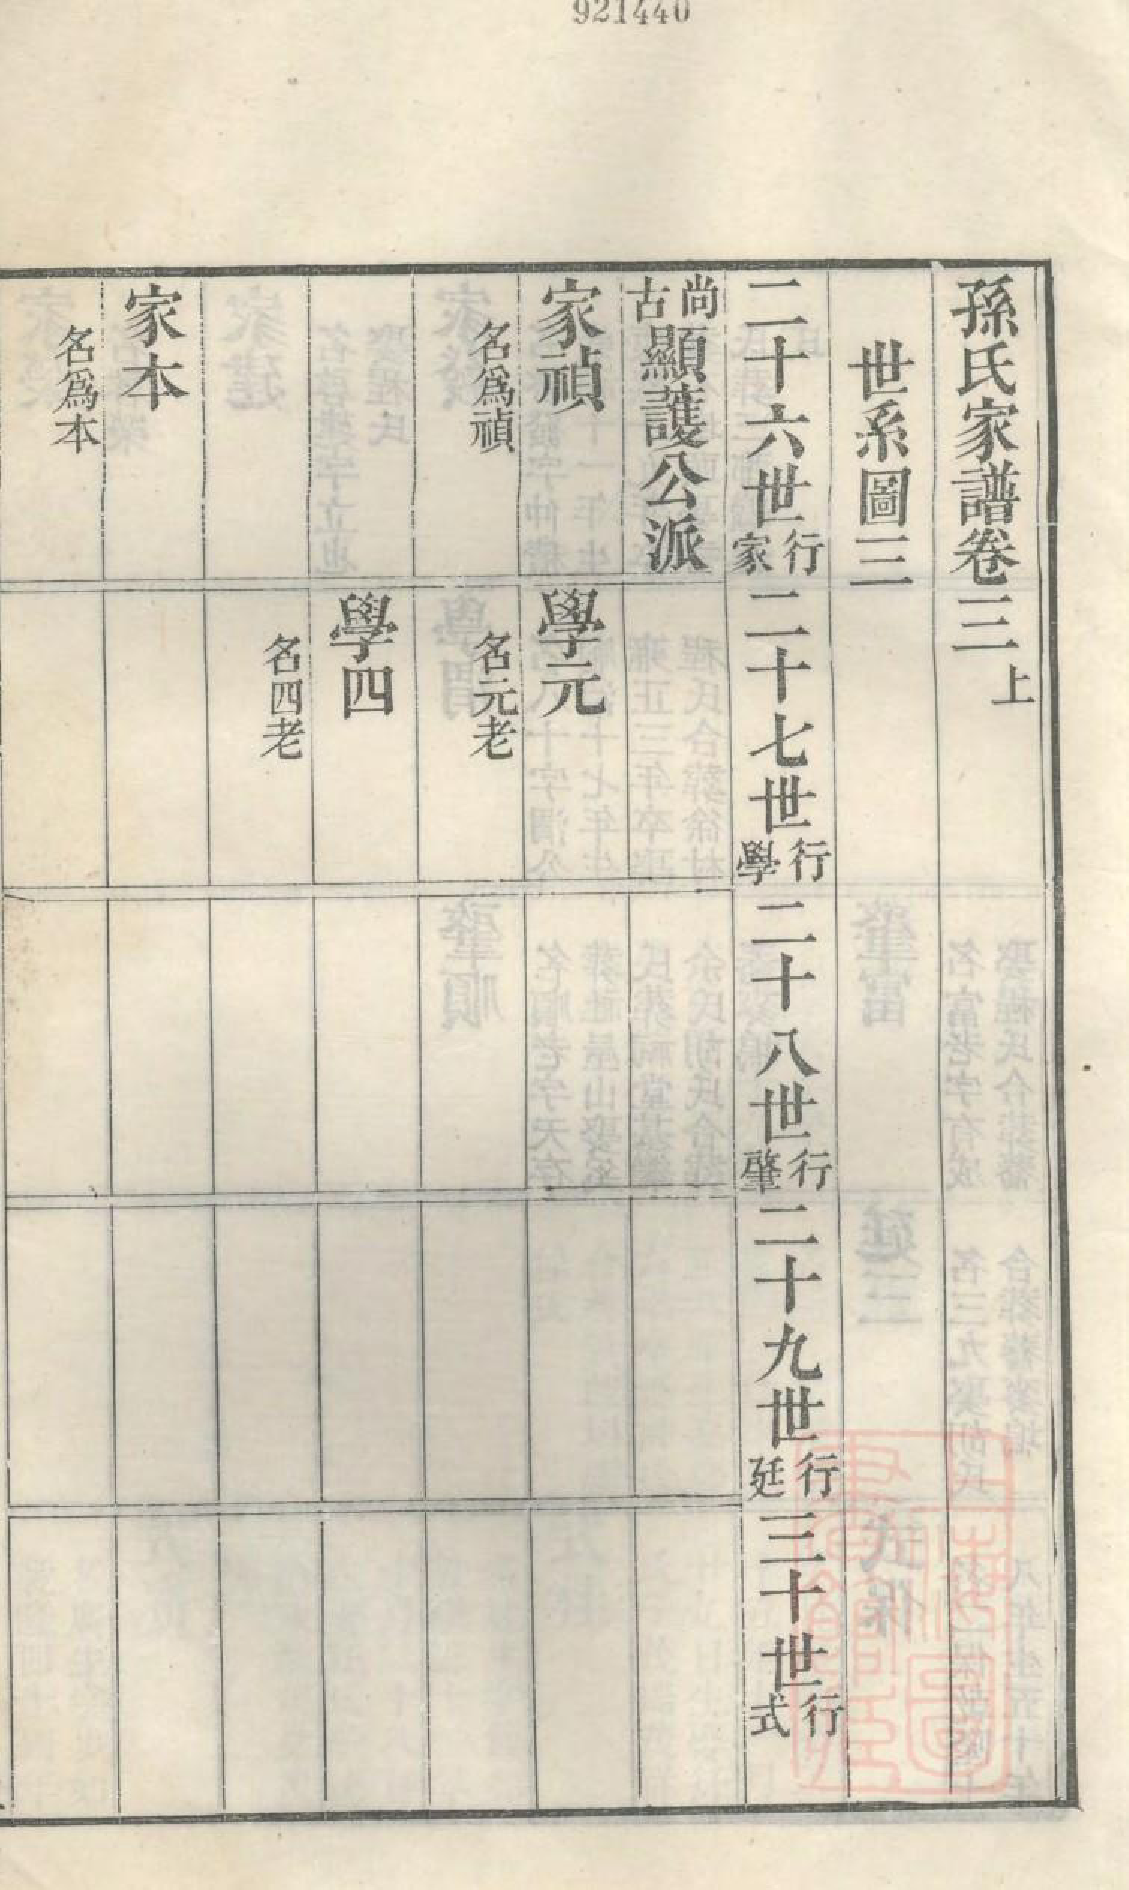 921440
孫氏家譜卷三上
世系圖三
二十六世家行
二十七世學行
二十八世肇行
二十九世廷行
三十世式行
尚古顯護公派
家禎
學元
名爲禎
名元老
學四
名四老
家本
名爲本